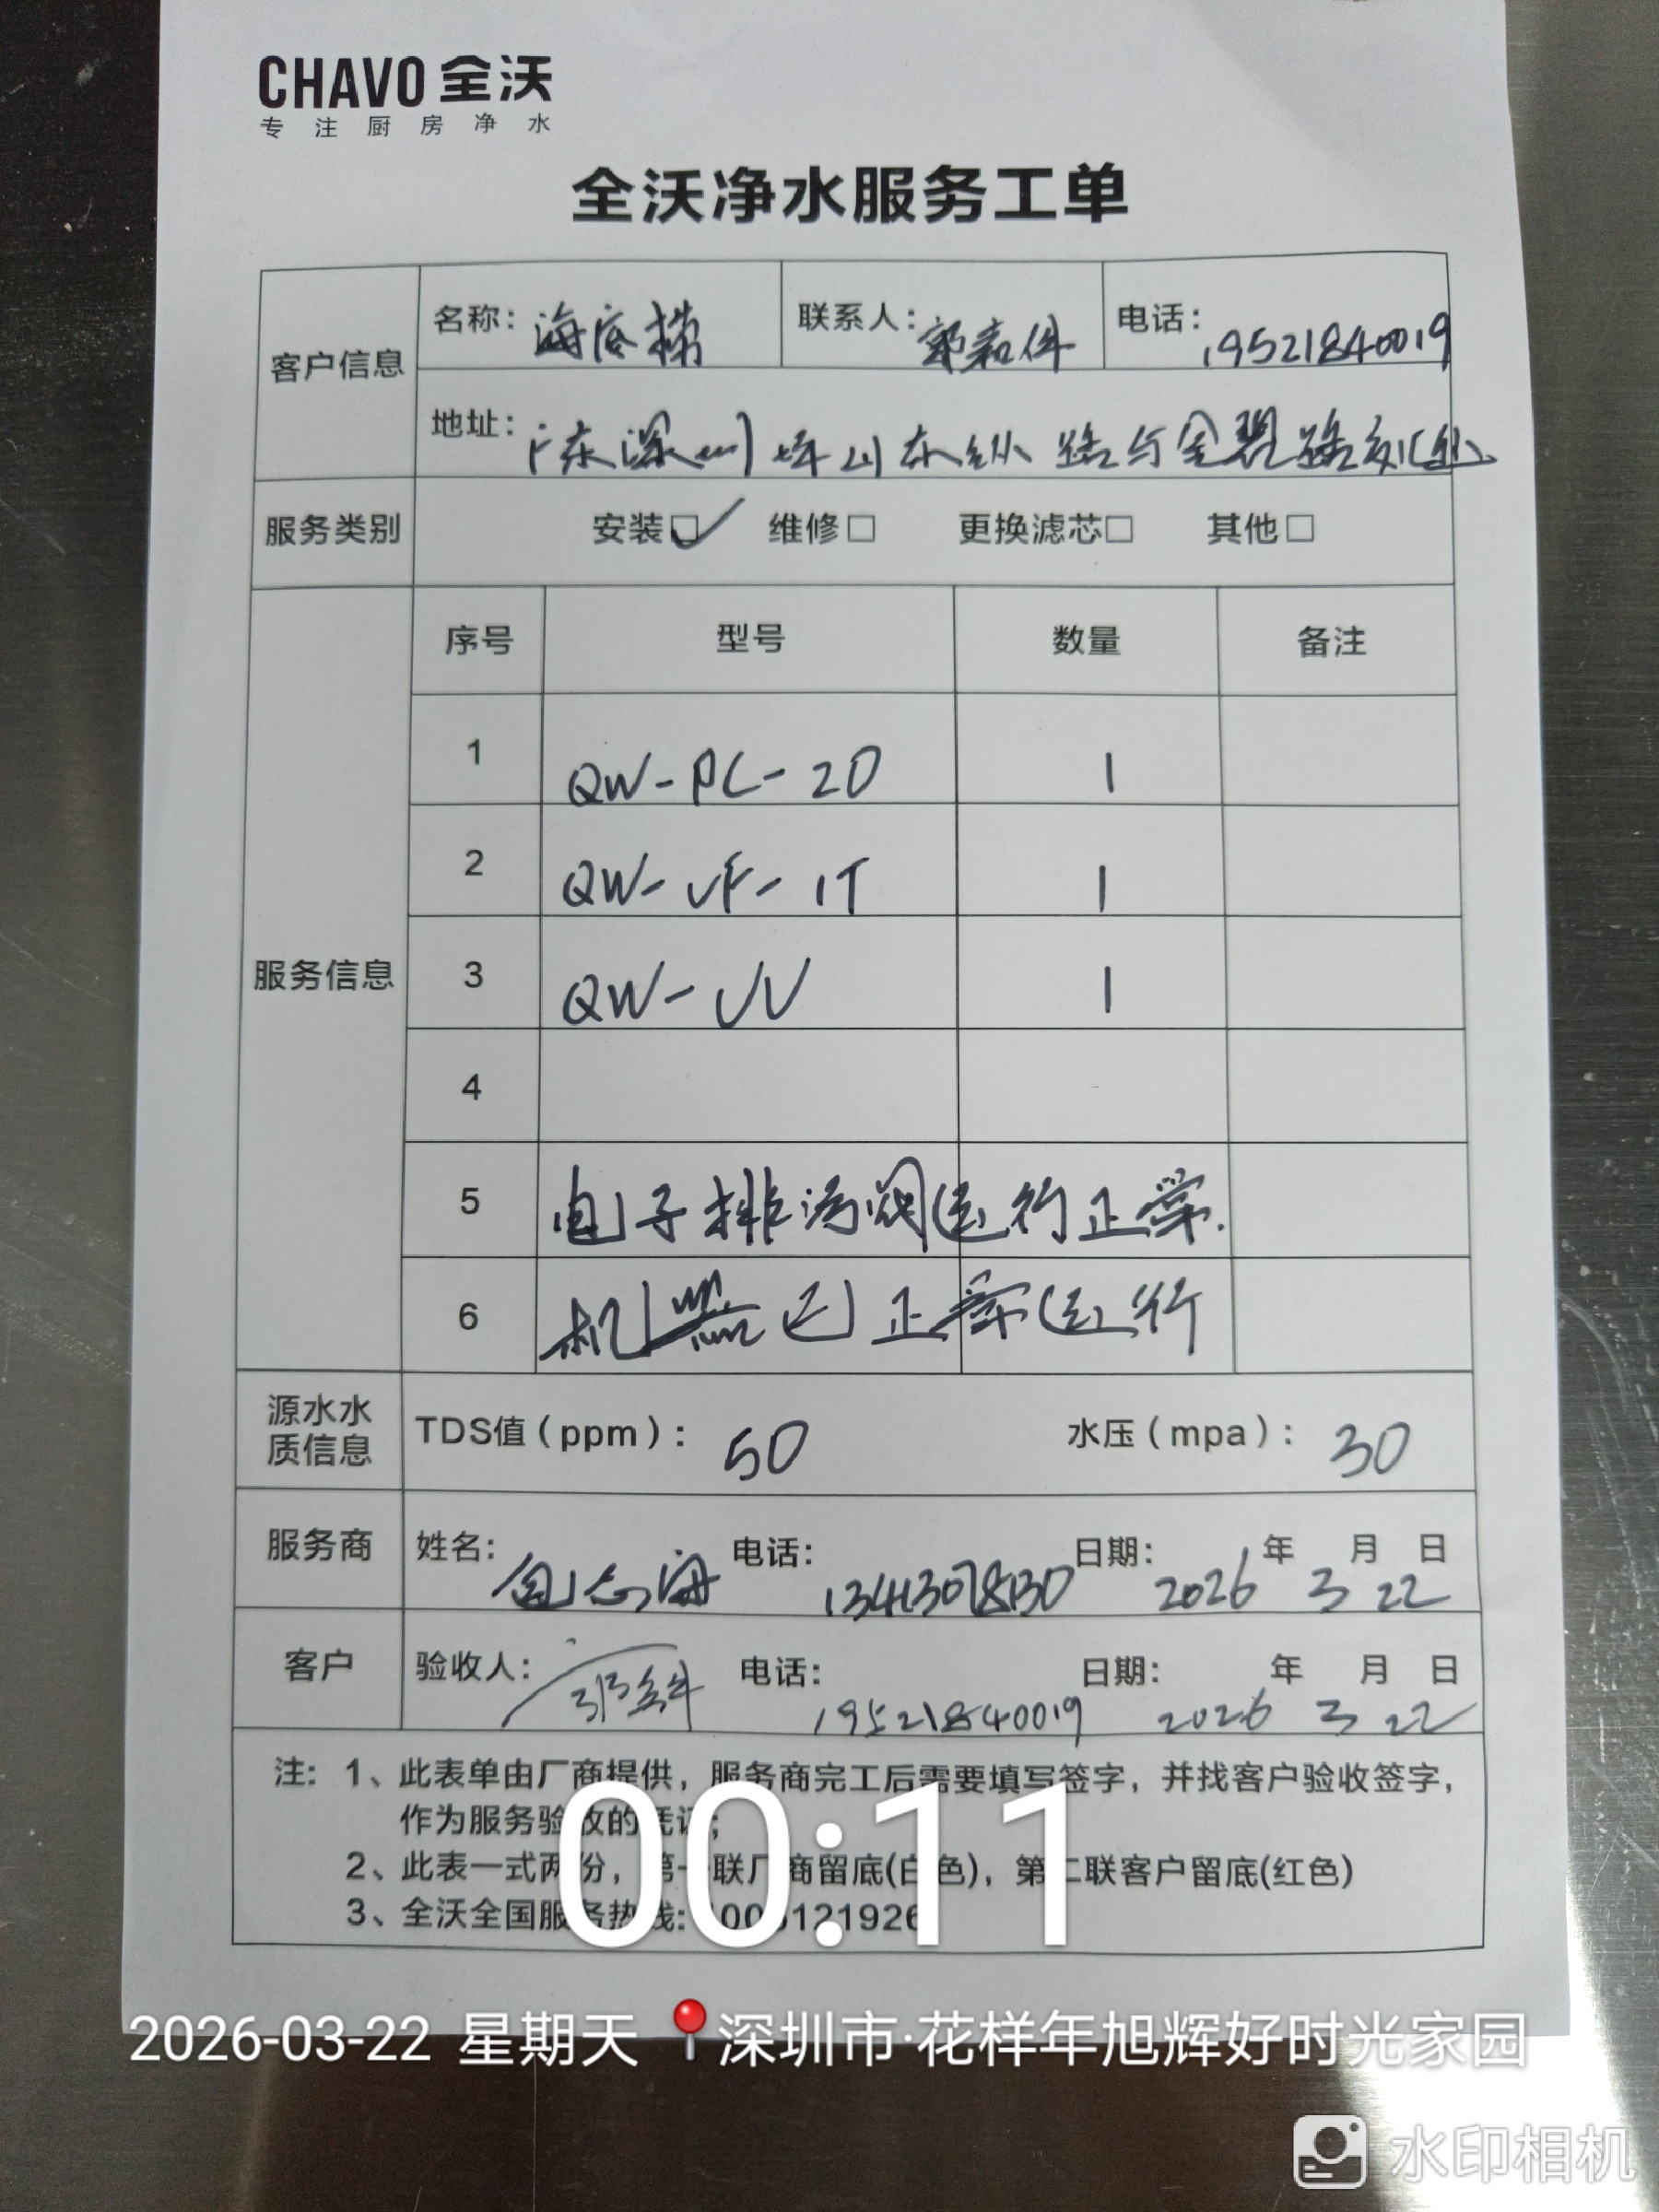 CHAVO 全沃
专注厨房净水
全沃净水服务工单
客户信息
名称：海底捞 联系人：郭嘉 电话：19521840019
地址：广东深圳坪山东纵路与金碧路交汇处
服务类别 安装☑ 维修□ 更换滤芯□ 其他□
服务信息
序号 型号 数量 备注
1 QW-PC-20 1
2 QW-UF-1T 1
3 QW-UV 1
4
5 电子排污阀运行正常.
6 机器已正常运行
源水水质信息 TDS值（ppm）：50 水压（mpa）：30
服务商 姓名： 电话：13413078130 日期：2026年3月22日
客户 验收人： 电话：19521840019 日期：2026年3月22日
注：1、此表单由厂商提供，服务商完工后需要填写签字，并找客户验收签字，
作为服务验收的凭证；
2、此表一式两份，第一联厂商留底(白色)，第二联客户留底(红色)
3、全沃全国服务热线：
00:11
2026-03-22 星期天 深圳市·花样年旭辉好时光家园
水印相机